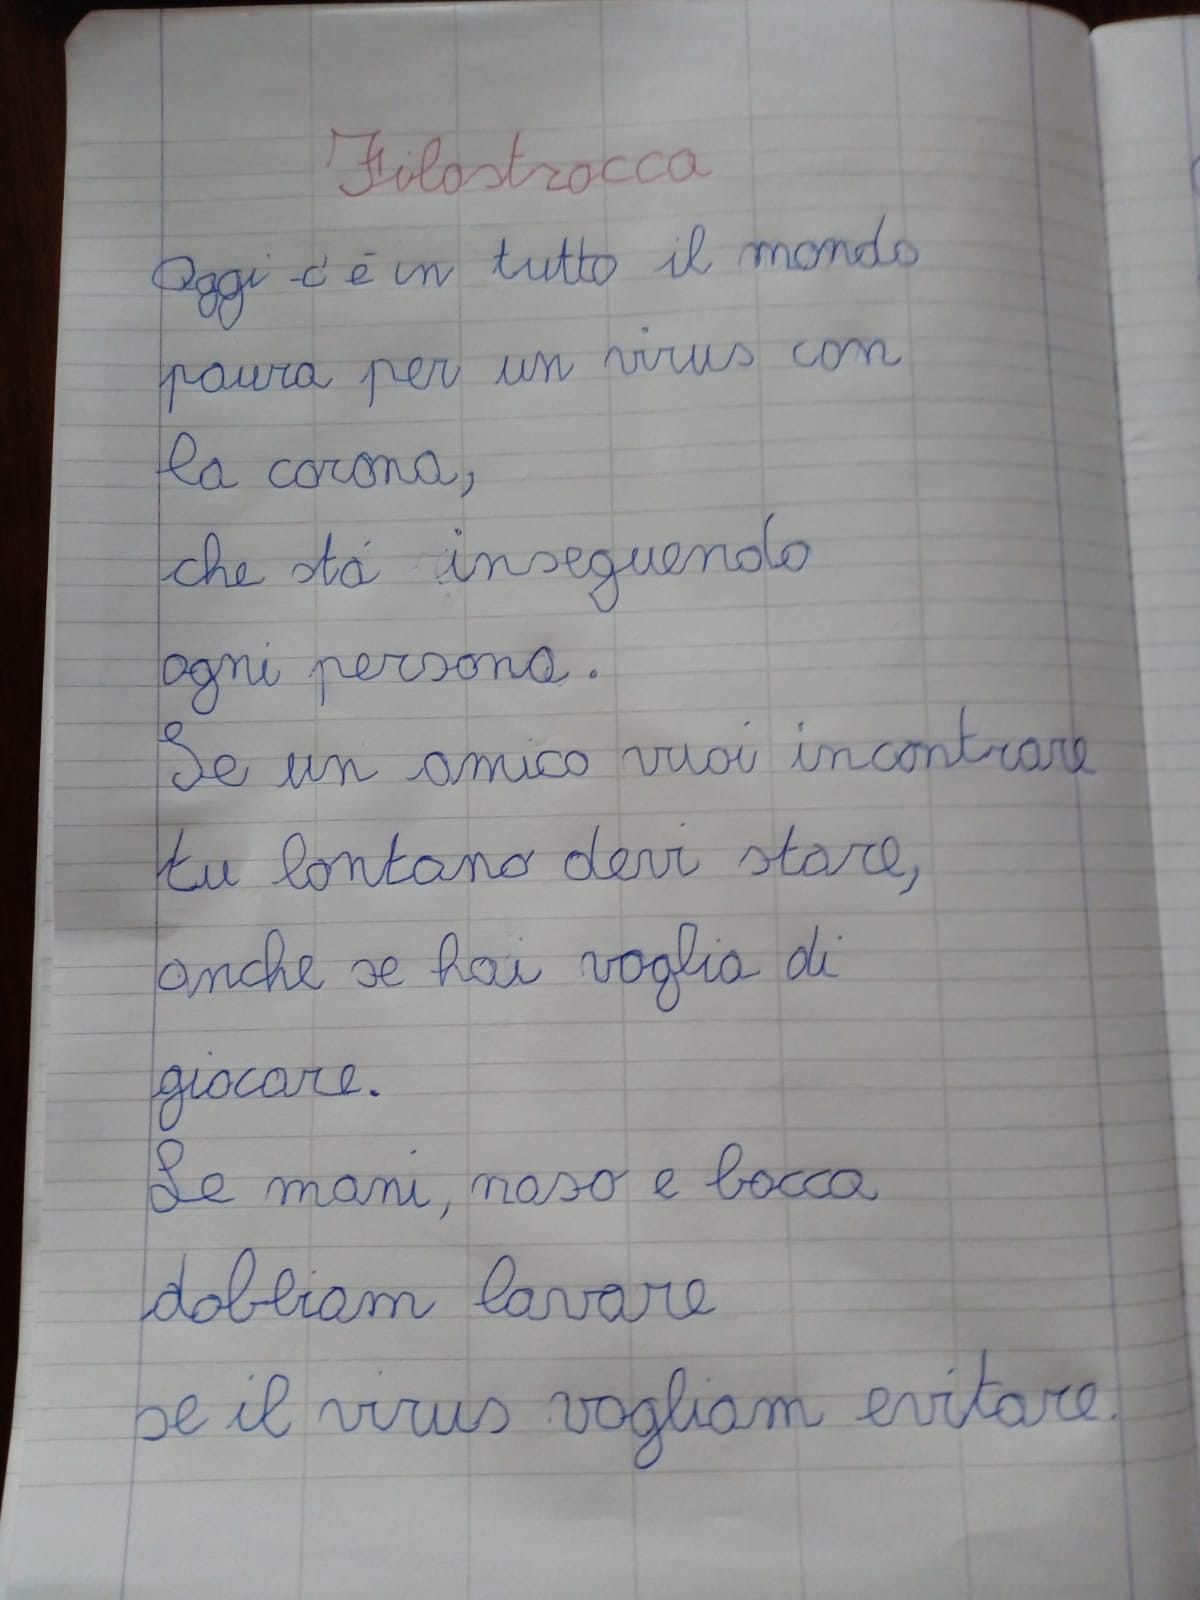 Filastrocca
Oggi c'è in tutto il mondo
paura per un virus con
la corona,
che stá inseguendo
ogni persona.
Se un amico vuoi incontrare
tu lontano devi stare,
anche se hai voglia di
giocare.
Le mani, naso e bocca
dobbiam lavare
se il virus vogliam evitare.